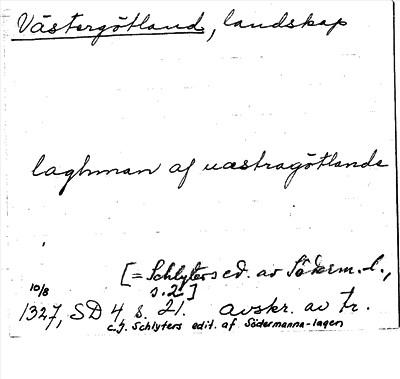 Västergötland, landskap
laghman af uæstragötlande
[= Schlyters ed. av Söderm.-l.,
s. 2]
10/8
1327, SD 4 s. 21. avskr. av tr.
c.f. Schlyters edit. af Södermanna-lagen